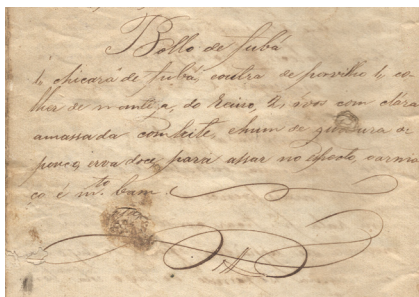 Bollo de fubá
1, chicará de fubá, e outra de porvilho 1, co
lher de manteiga, do Reino, 2, óvos com clára
amassada com leite, e hum de gurdura de
pouca erva doce, para assar no
ço é m.to bam.